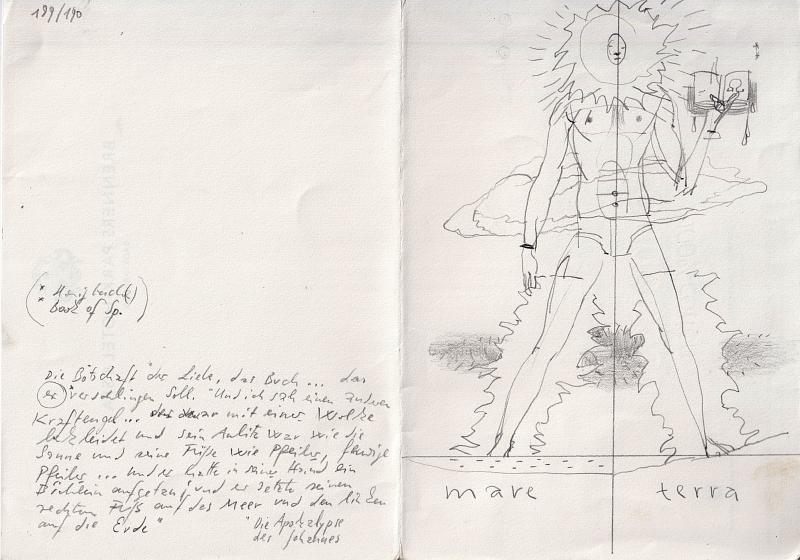 189/190
BRENNERS PAR
Book of Sp.
Die Botschaft der Liebe, das Buch... das
er verschlingen soll. "Und ich sah einen anderen
Kraftengel... war mit einer Wolke
bekleidet und sein Antlitz war wie die
Sonne und seine Füße wie Pfeiler, feurige
Pfeiler... und er hatte in seiner Hand ein
Büchlein aufgetan, und er setzte seinen
rechten Fuß auf das Meer und den linken
auf die Erde"
"Die Apokalypse
des Johannes
mare
terra